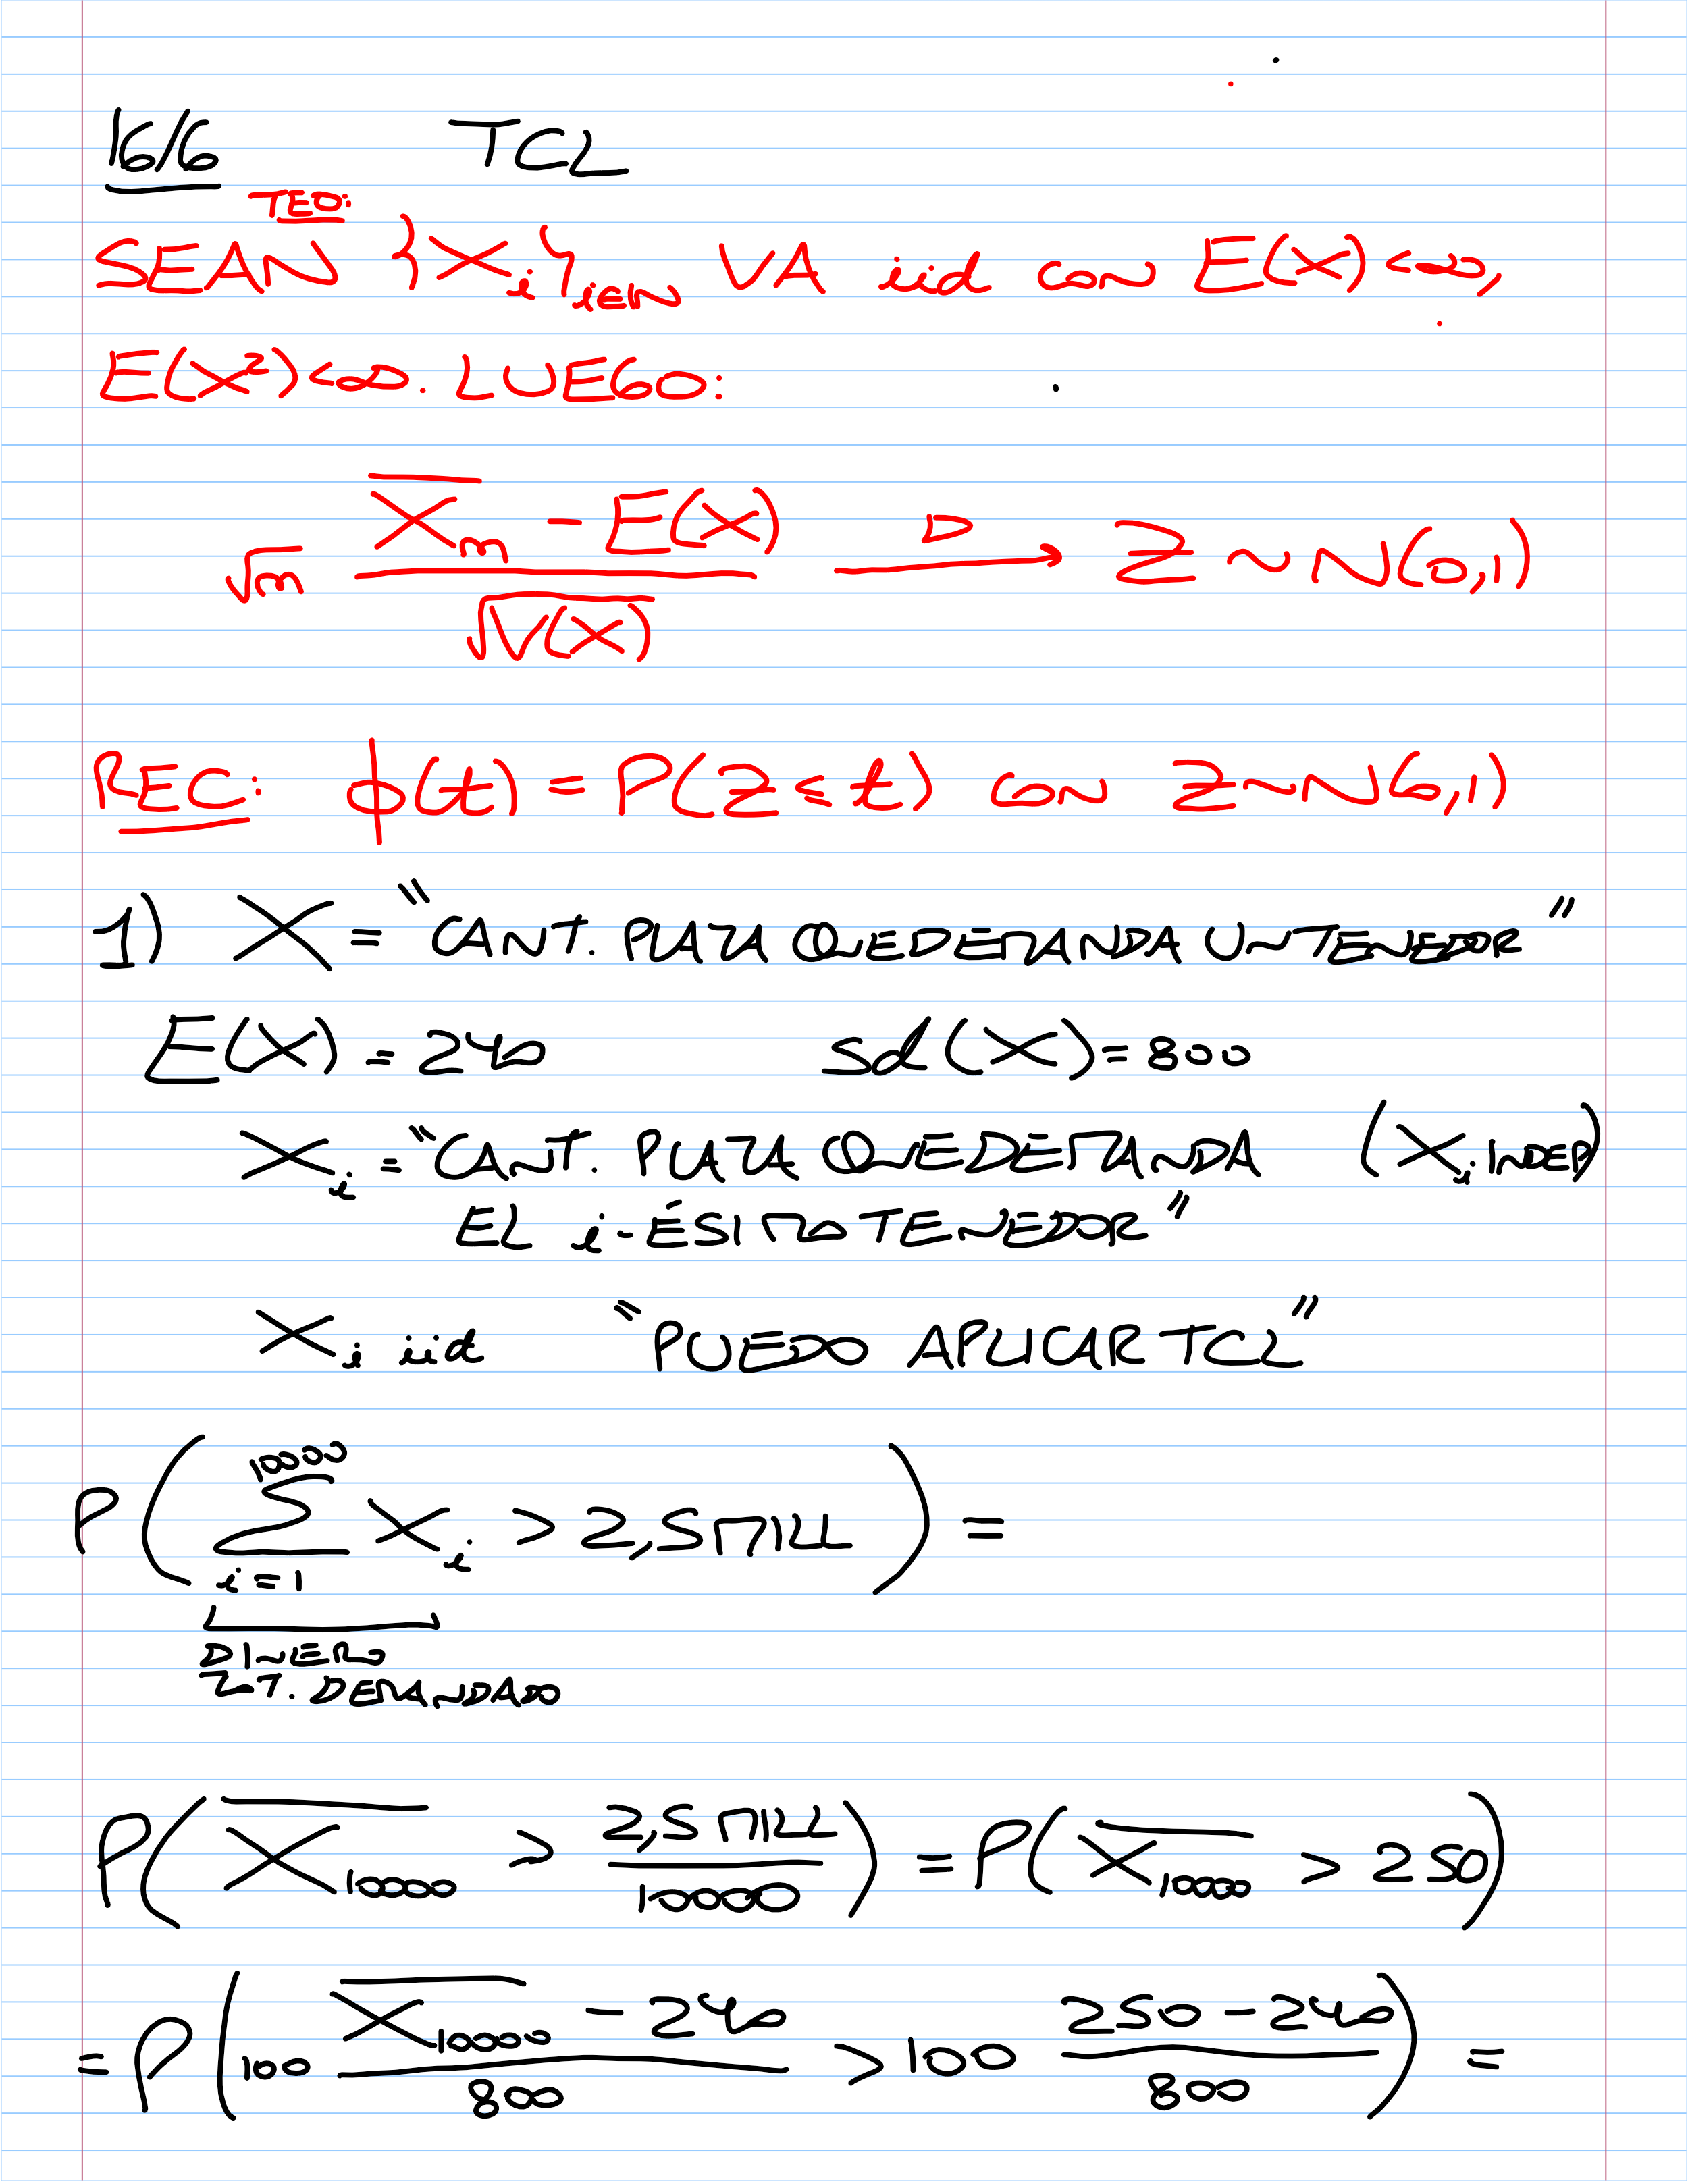 16/6 TCL
TEO:
SEAN {X_i}_{i∈ℕ} VA iid con E(X)<∞,
E(X²)<∞. LUEGO:
√n (X̄_n - E(X)) / √V(X) —D→ Z ~ N(0,1)
REC: ϕ(t) = P(Z ≤ t) con Z ~ N(0,1)
1) X = "CANT. PLATA QUE DEMANDA UN TENEDOR"
E(X) = 240 sd(X) = 800
X_i = "CANT. PLATA QUE DEMANDA (X_i INDEP)
EL i-ÉSIMO TENEDOR"
X_i iid "PUEDO APLICAR TCL"
P( ∑_{i=1}^{10000} X_i > 2,5 MILL ) =
DINERO
TOT. DEMANDADO
P( X̄_10000 > 2,5 MILL / 10000 ) = P( X̄_10000 > 250 )
= P( 100 (X̄_10000 - 240) / 800 > 100 (250 - 240) / 800 ) =